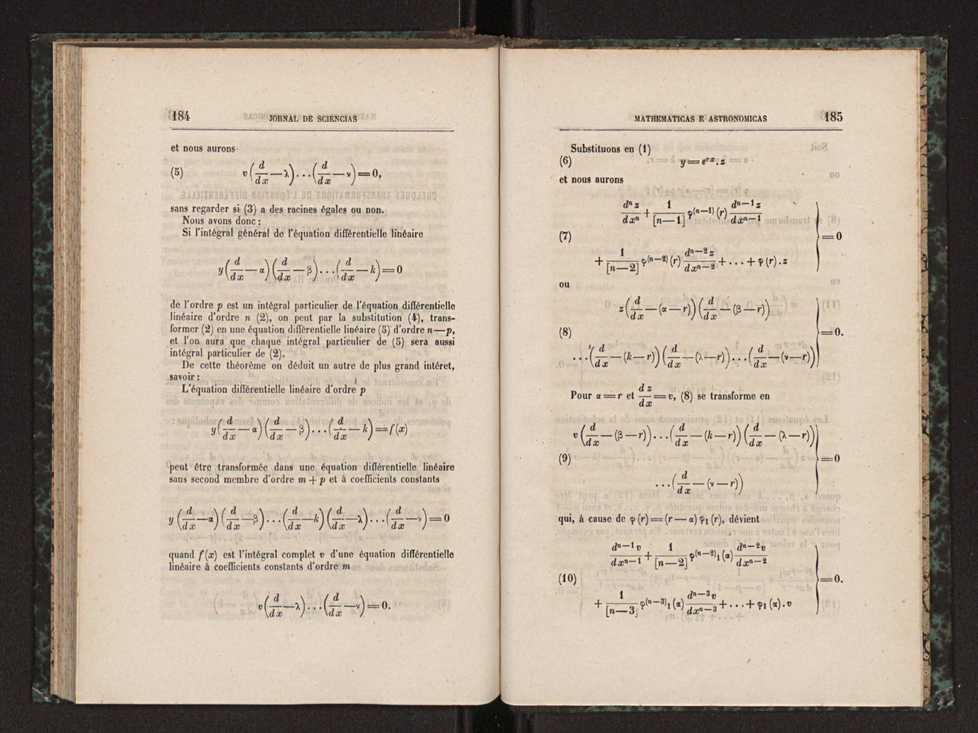 184 JORNAL DE SCIENCIAS
et nous aurons
(5) v(d/dx—λ)...(d/dx—ν)=0,
sans regarder si (3) a des racines égales ou non.
Nous avons donc:
Si l'intégral général de l'équation différentielle linéaire
y(d/dx—α)(d/dx—β)...(d/dx—k)=0
de l'ordre p est un intégral particulier de l'équation différentielle
linéaire d'ordre n (2), on peut par la substitution (4), trans-
former (2) en une équation différentielle linéaire (5) d'ordre n—p,
et l'on aura que chaque intégral particulier de (5) sera aussi
intégral particulier de (2).
De cette théorème on déduit un autre de plus grand intéret,
savoir:
L'équation différentielle linéaire d'ordre p
y(d/dx—α)(d/dx—β)...(d/dx—k)=f(x)
peut être transformée dans une équation différentielle linéaire
sans second membre d'ordre m+p et à coefficients constants
y(d/dx—α)(d/dx—β)...(d/dx—k)(d/dx—λ)...(d/dx—ν)=0
quand f(x) est l'intégral complet v d'une équation différentielle
linéaire à coefficients constants d'ordre m
v(d/dx—λ)...(d/dx—ν)=0.
MATHEMATICAS E ASTRONOMICAS 185
Substituons en (1)
(6) y=e^{rx}.z
et nous aurons
(7) d^n z/dx^n + 1/[n—1] φ^{(n—1)}(r) d^{n—1}z/dx^{n—1}
+ 1/[n—2] φ^{(n—2)}(r) d^{n—2}z/dx^{n—2} + ... + φ(r).z } =0
ou
(8) z(d/dx—(α—r))(d/dx—(β—r))
...(d/dx—(k—r))(d/dx—(λ—r))...(d/dx—(ν—r)) } =0.
Pour α=r et dz/dx=v, (8) se transforme en
(9) v(d/dx—(β—r))...(d/dx—(k—r))(d/dx—(λ—r))
...(d/dx—(ν—r)) } =0
qui, à cause de φ(r)=(r—α)φ₁(r), dévient
(10) d^{n—1}v/dx^{n—1} + 1/[n—2] φ^{(n—2)}₁(α) d^{n—2}v/dx^{n—2}
+ 1/[n—3] φ^{(n—3)}₁(α) d^{n—3}v/dx^{n—3} + ... + φ₁(α).v } =0.